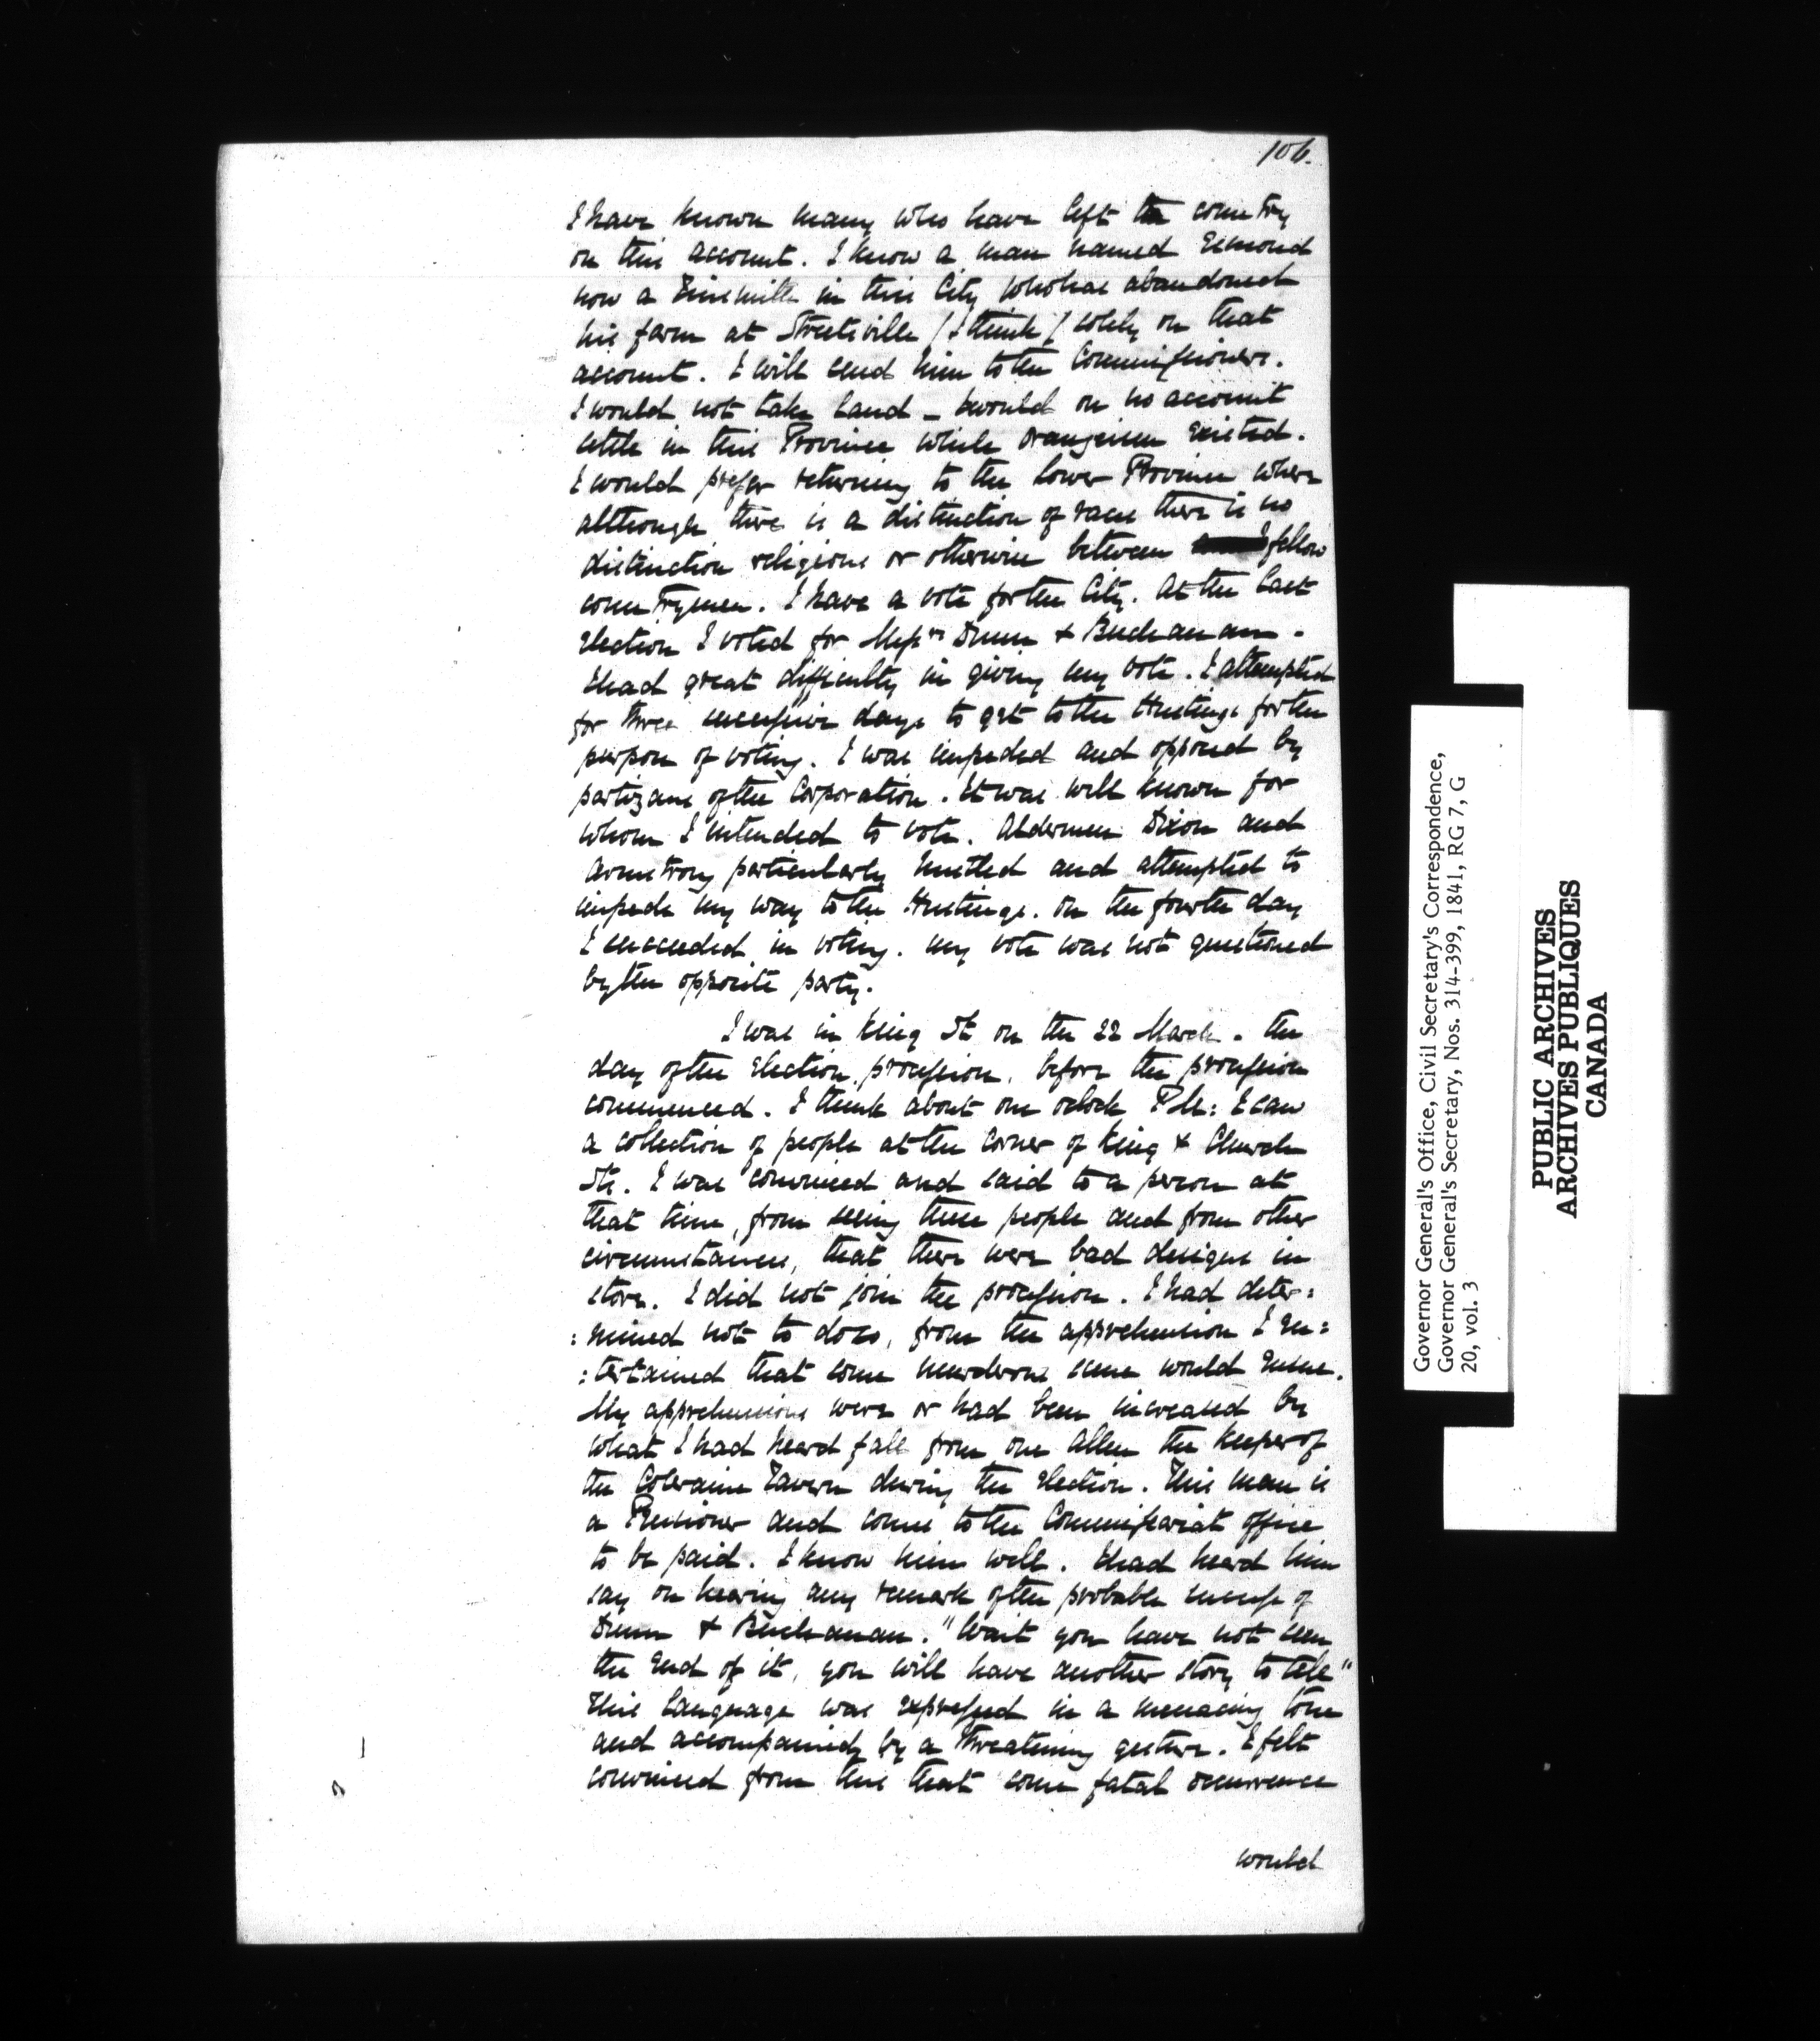 106.
I have known many who have left the country
on this account. I know a man named Esmond
now a Tinsmith in this City who has abandoned
his farm at Streetsville (I think) solely on that
account. I will send him to the Commissioners.
I would not take land - & would on no account
settle in this Province while Orangeism existed.
I would prefer returning to the Lower Province where
although there is a distinction of races there is no
distinction religious or otherwise between fellow
countrymen. I have a vote for the City. At the last
Election I voted for Messrs Dunn & Buchanan.
I had great difficulty in giving my vote. I attempted
for three successive days to get to the Hustings for the
purpose of voting. I was impeded and opposed by
partizans of the Corporation. It was well known for
whom I intended to vote. Aldermen Dixon and
Armstrong particularly hustled and attempted to
impede my way to the Hustings. On the fourth day
I succeeded in voting. My vote was not questioned
by the opposite party.
I was in King St on the 22 March. the
day of the Election procession, before the procession
commenced. I think about one oclock PM: I saw
a collection of people at the corner of King & Church
Sts. I was convinced and said to a person at
that time, from seeing these people and from other
circumstances, that there were bad designs in
store. I did not join the procession. I had deter:
:mined not to do so, from the apprehension I en:
:tertained that some murderous scene would ensue.
My apprehensions were or had been increased by
what I had heard fall from one Allen the keeper of
the Coleraine Tavern during the Election. This man is
a Pensioner and comes to the Commissariat office
to be paid. I know him well. I had heard him
say on hearing any remark of the probable success of
Dunn & Buchanan. "Wait you have not seen
the end of it, you will have another story to tell"
This language was expressed in a menacing tone
and accompanied by a threatening gesture. I felt
convinced from this that some fatal occurrence
would
Governor General's Office, Civil Secretary's Correspondence,
Governor General's Secretary, Nos. 314-399, 1841, RG 7, G
20, vol. 3
PUBLIC ARCHIVES
ARCHIVES PUBLIQUES
CANADA